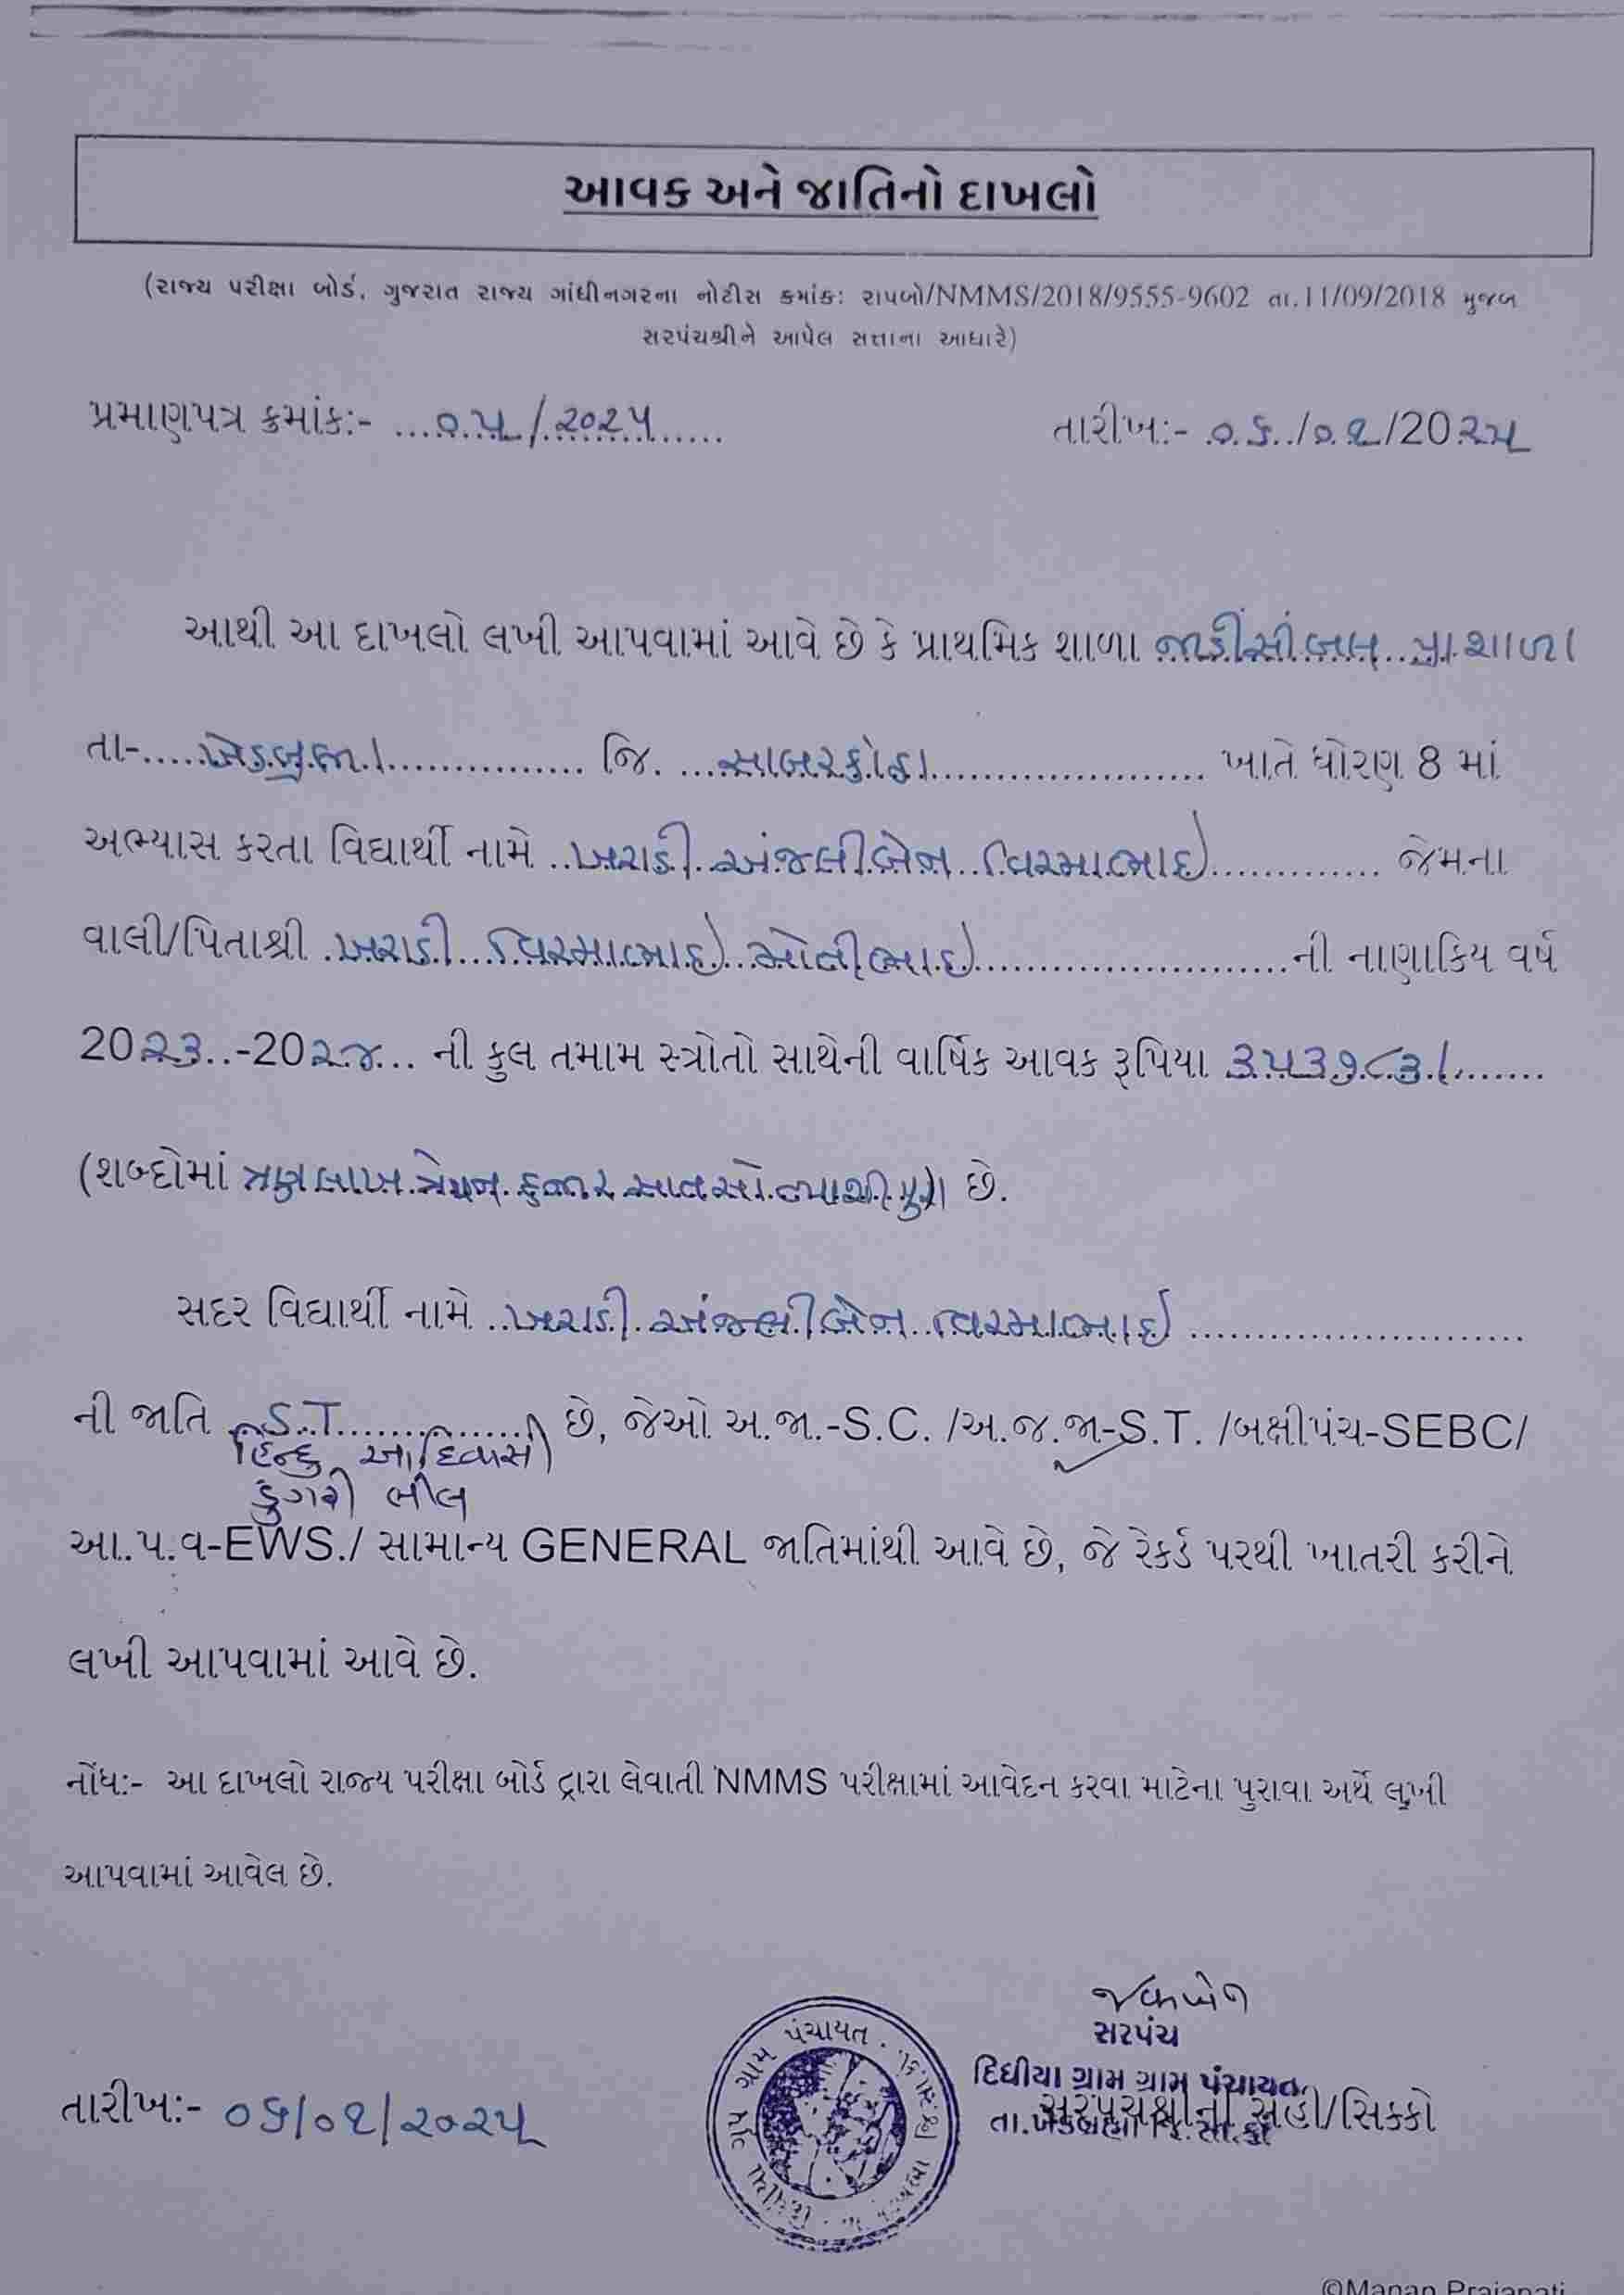 આવક અને જાતિનો દાખલો
(રાજ્ય પરીક્ષા બોર્ડ, ગુજરાત રાજ્ય ગાંધીનગરના નોટીસ ક્રમાંક: રાપબો/NMMS/2018/9555-9602 તા.11/09/2018 મુજબ
સરપંચશ્રીને આપેલ સત્તાના આધારે)
પ્રમાણપત્ર ક્રમાંક:- ...૦૫/૨૦૨૫...... તારીખ:- ૦૬/૦૧/20૨૫
આથી આ દાખલો લખી આપવામાં આવે છે કે પ્રાથમિક શાળા જાડીસીંબલ પ્રા શાળા
તા-.....ખેડબ્રહ્મા............... જિ. ...સાબરકાંઠા..................... ખાતે ધોરણ 8 માં
અભ્યાસ કરતા વિદ્યાર્થી નામે ..ખરાડી અંજલીબેન વિરમાભાઇ............. જેમના
વાલી/પિતાશ્રી .ખરાડી વિરમાભાઇ મોતીભાઇ........................ની નાણાકિય વર્ષ
20૨૩..-20૨૪... ની કુલ તમામ સ્ત્રોતો સાથેની વાર્ષિક આવક રૂપિયા ૩૫૩૭૮૩/.......
(શબ્દોમાં ત્રણ લાખ ત્રેપન હજાર સાતસો ત્યાશી પુરા) છે.
સદર વિદ્યાર્થી નામે ..ખરાડી અંજલીબેન વિરમાભાઇ .........................
ની જાતિ S.T.............. છે, જેઓ અ.જા.-S.C. /અ.જ.જા-S.T. /બક્ષીપંચ-SEBC/
હિન્દુ આદિવાસી
ડુંગરી ભીલ
આ.પ.વ-EWS./ સામાન્ય GENERAL જાતિમાંથી આવે છે, જે રેકર્ડ પરથી ખાતરી કરીને
લખી આપવામાં આવે છે.
નોંધ:- આ દાખલો રાજ્ય પરીક્ષા બોર્ડ દ્વારા લેવાતી NMMS પરીક્ષામાં આવેદન કરવા માટેના પુરાવા અર્થે લખી
આપવામાં આવેલ છે.
સરપંચ
દિધીયા ગ્રામ ગ્રામ પંચાયત
તા.ખેડબ્રહ્મા જિ.સા.કાં
સરપંચશ્રીની સહી/સિક્કો
તારીખ:- ૦૬/૦૧/૨૦૨૫
ગ્રામ પંચાયત
©Manan Prajapati